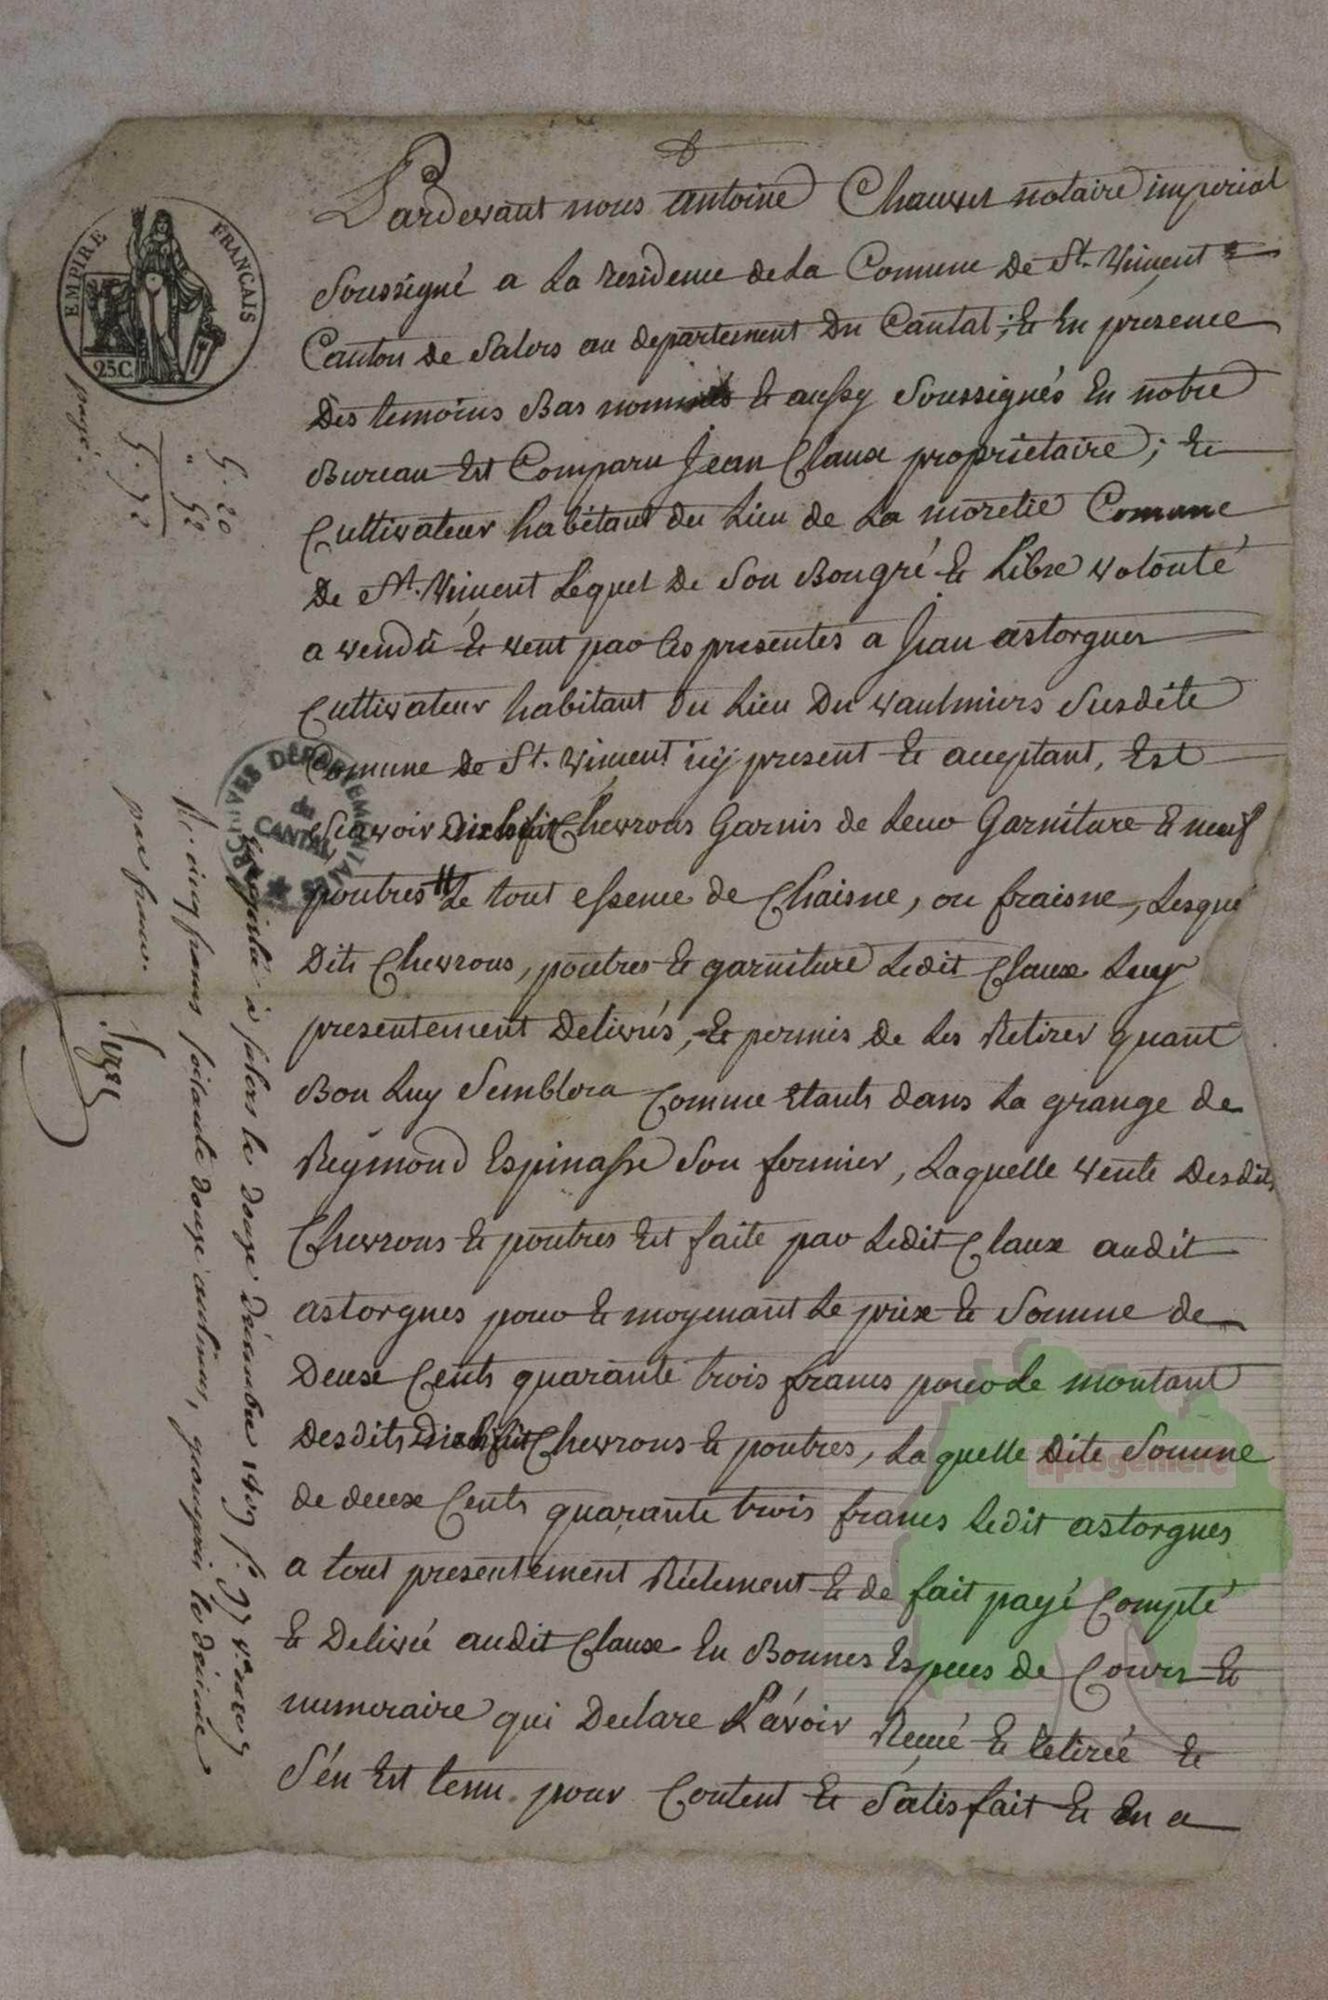 EMPIRE FRANÇAIS
25C.
Pardevant nous antoine Chauvet notaire imperial
Soussigné a La residence de La Comune De St. Vincent
Canton de Salers au departement Du Cantal; & En présence
Des temoins Bas nommés & aussy Soussignés En notre
Bureau Est Comparu Jean Claux propriétaire; &
Cultivateur habitant du Lieu de La moretie Comune
De St. Vincent Lequel De Son Bongré & Libre volonté
a vendu & vent par les presentes a Jean astorgues
Cultivateur habitant Du Lieu Du vaulmiers Susdite
Comune De St. Vincent icy present & acceptant, Est
Scavoir Dixhuit Chevrons Garnis de Leur Garniture & neuf
poutres Le tout essence de Chaisne, ou fraisne, Lesque
Dits Chevrons, poutres & garniture Ledit Claux Luy
presentement Delivrés, & permis de Les Retirer quant
Bon Luy Semblera Comme Etants dans La grange de
Reymond Espinasse Son fermier, Laquelle vente Desdits
Chevrons & poutres Est faite par Ledit Claux audit
astorgues pour & moyenant Le prix & Somme de
Deux Cents quarante trois francs pour Le montant
Desdits Dixhuit Chevrons & poutres, La quelle Dite Somme
de deux Cents quarante trois francs Ledit astorgues
a tout presentement Réélement & de fait payé Compté
& Delivré audit Claux En Bonnes Espèces de Cours &
numeraire qui Declare L'avoir Reçue & retirée &
S'en Est tenu pour Content & Satisfait & En a
payé.
5. 20
" 52
5. 72
ARCHIVES DÉPARTEMENTALES
du
CANTAL
Enregistré à Salers le douze décembre
Rc. cinq francs soixante douze centimes, y compris le décime
par franc.
aprogemere